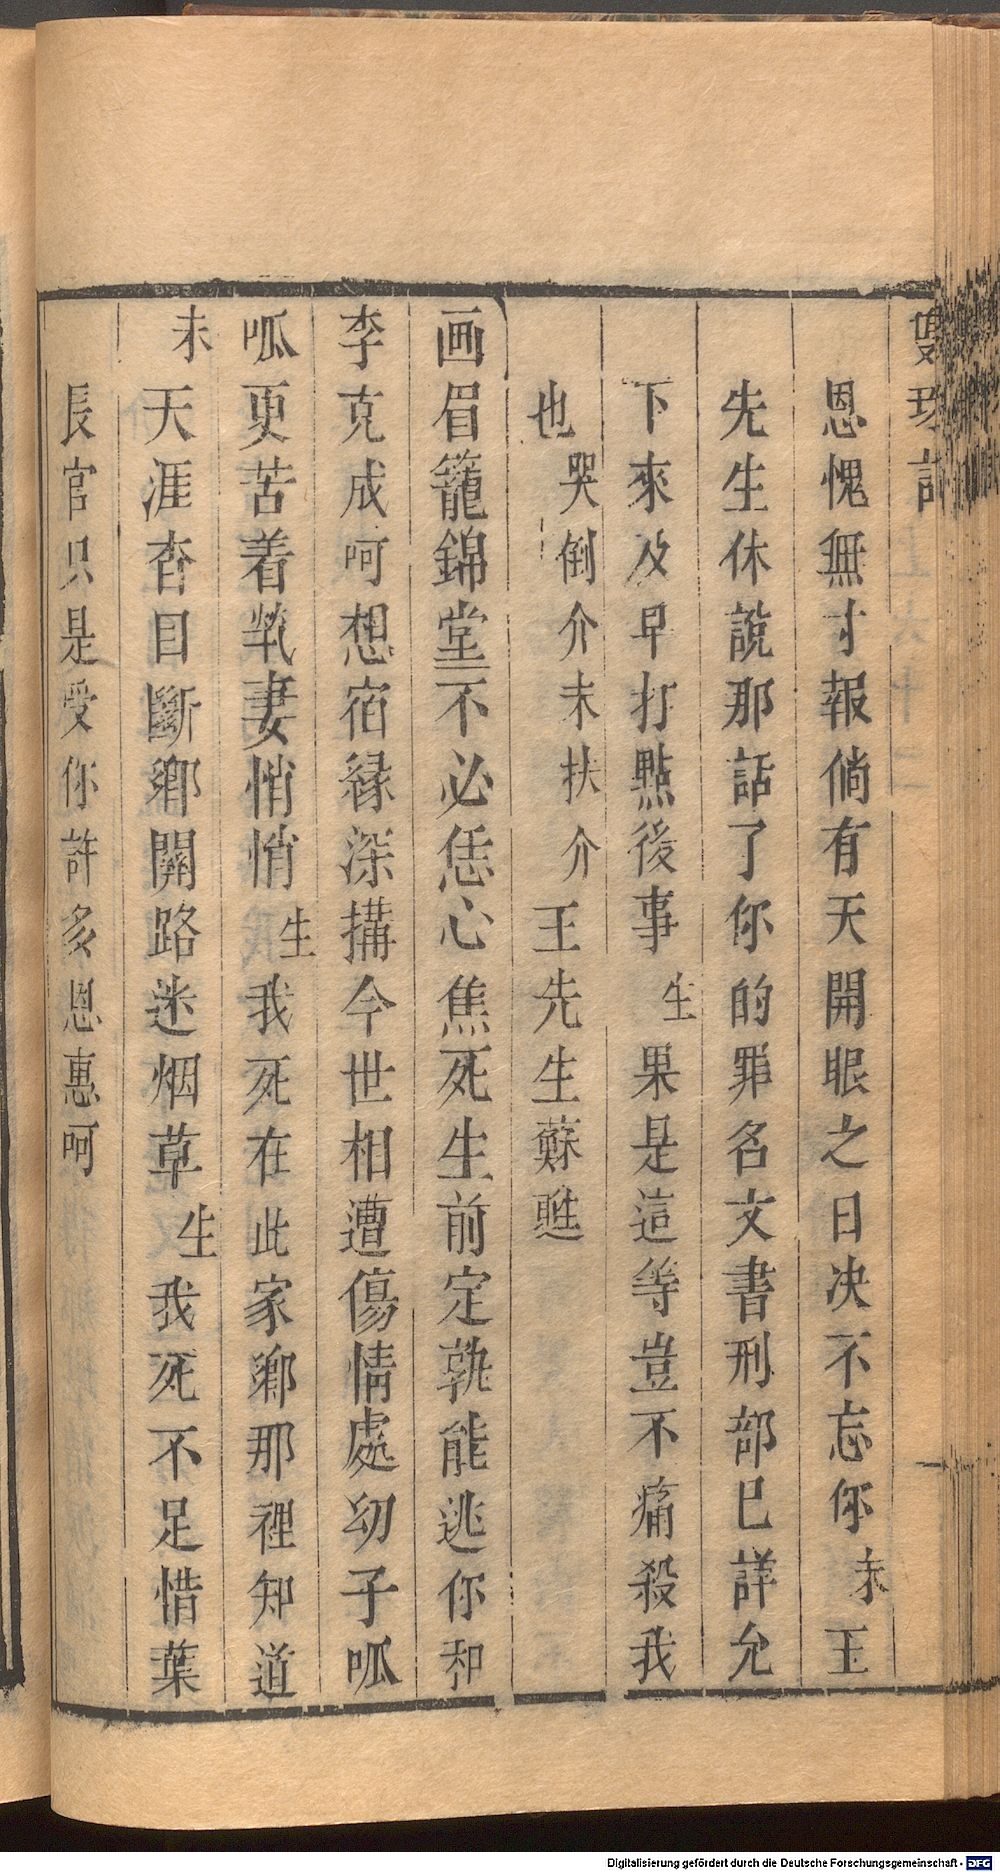 雙珠記
恩愧無寸報倘有天開眼之日决不忘你末王
先生休說那話了你的罪名文書刑部已詳允
下來及早打點後事生果是這等豈不痛殺我
也哭倒介末扶介王先生蘇甦
画眉籠錦堂不必恁心焦死生前定孰能逃你和
李克成呵想宿緣深搆今世相遭傷情處幼子呱
呱更苦着煢妻悄悄生我死在此家鄉那裡知道
末天涯杳目斷鄉關路迷烟草生我死不足惜葉
長官只是受你許多恩惠呵
Digitalisierung gefördert durch die Deutsche Forschungsgemeinschaft - DFG